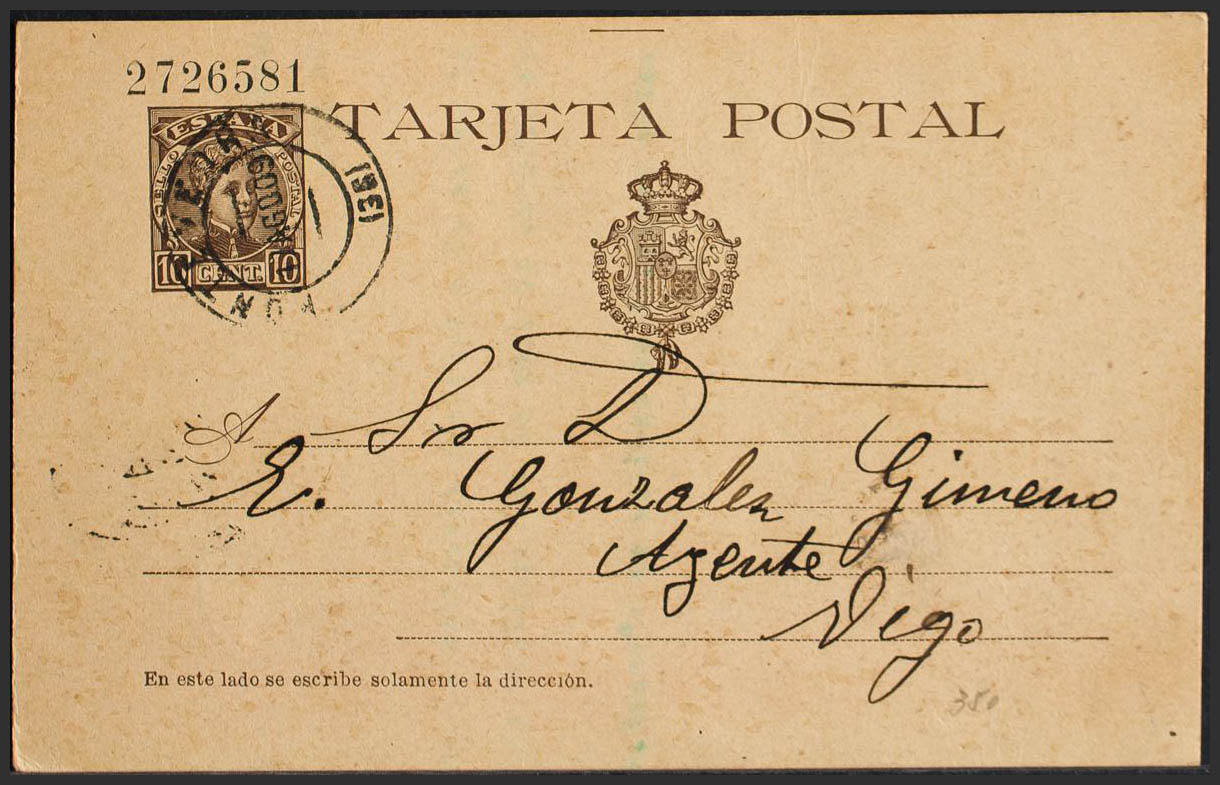 2726581
TARJETA POSTAL
ESPAÑA
SELLO POSTAL
10 CENT. 10
A Sr D
E. Gonzalez Gimeno
Agente
Vigo
En este lado se escribe solamente la dirección.
350